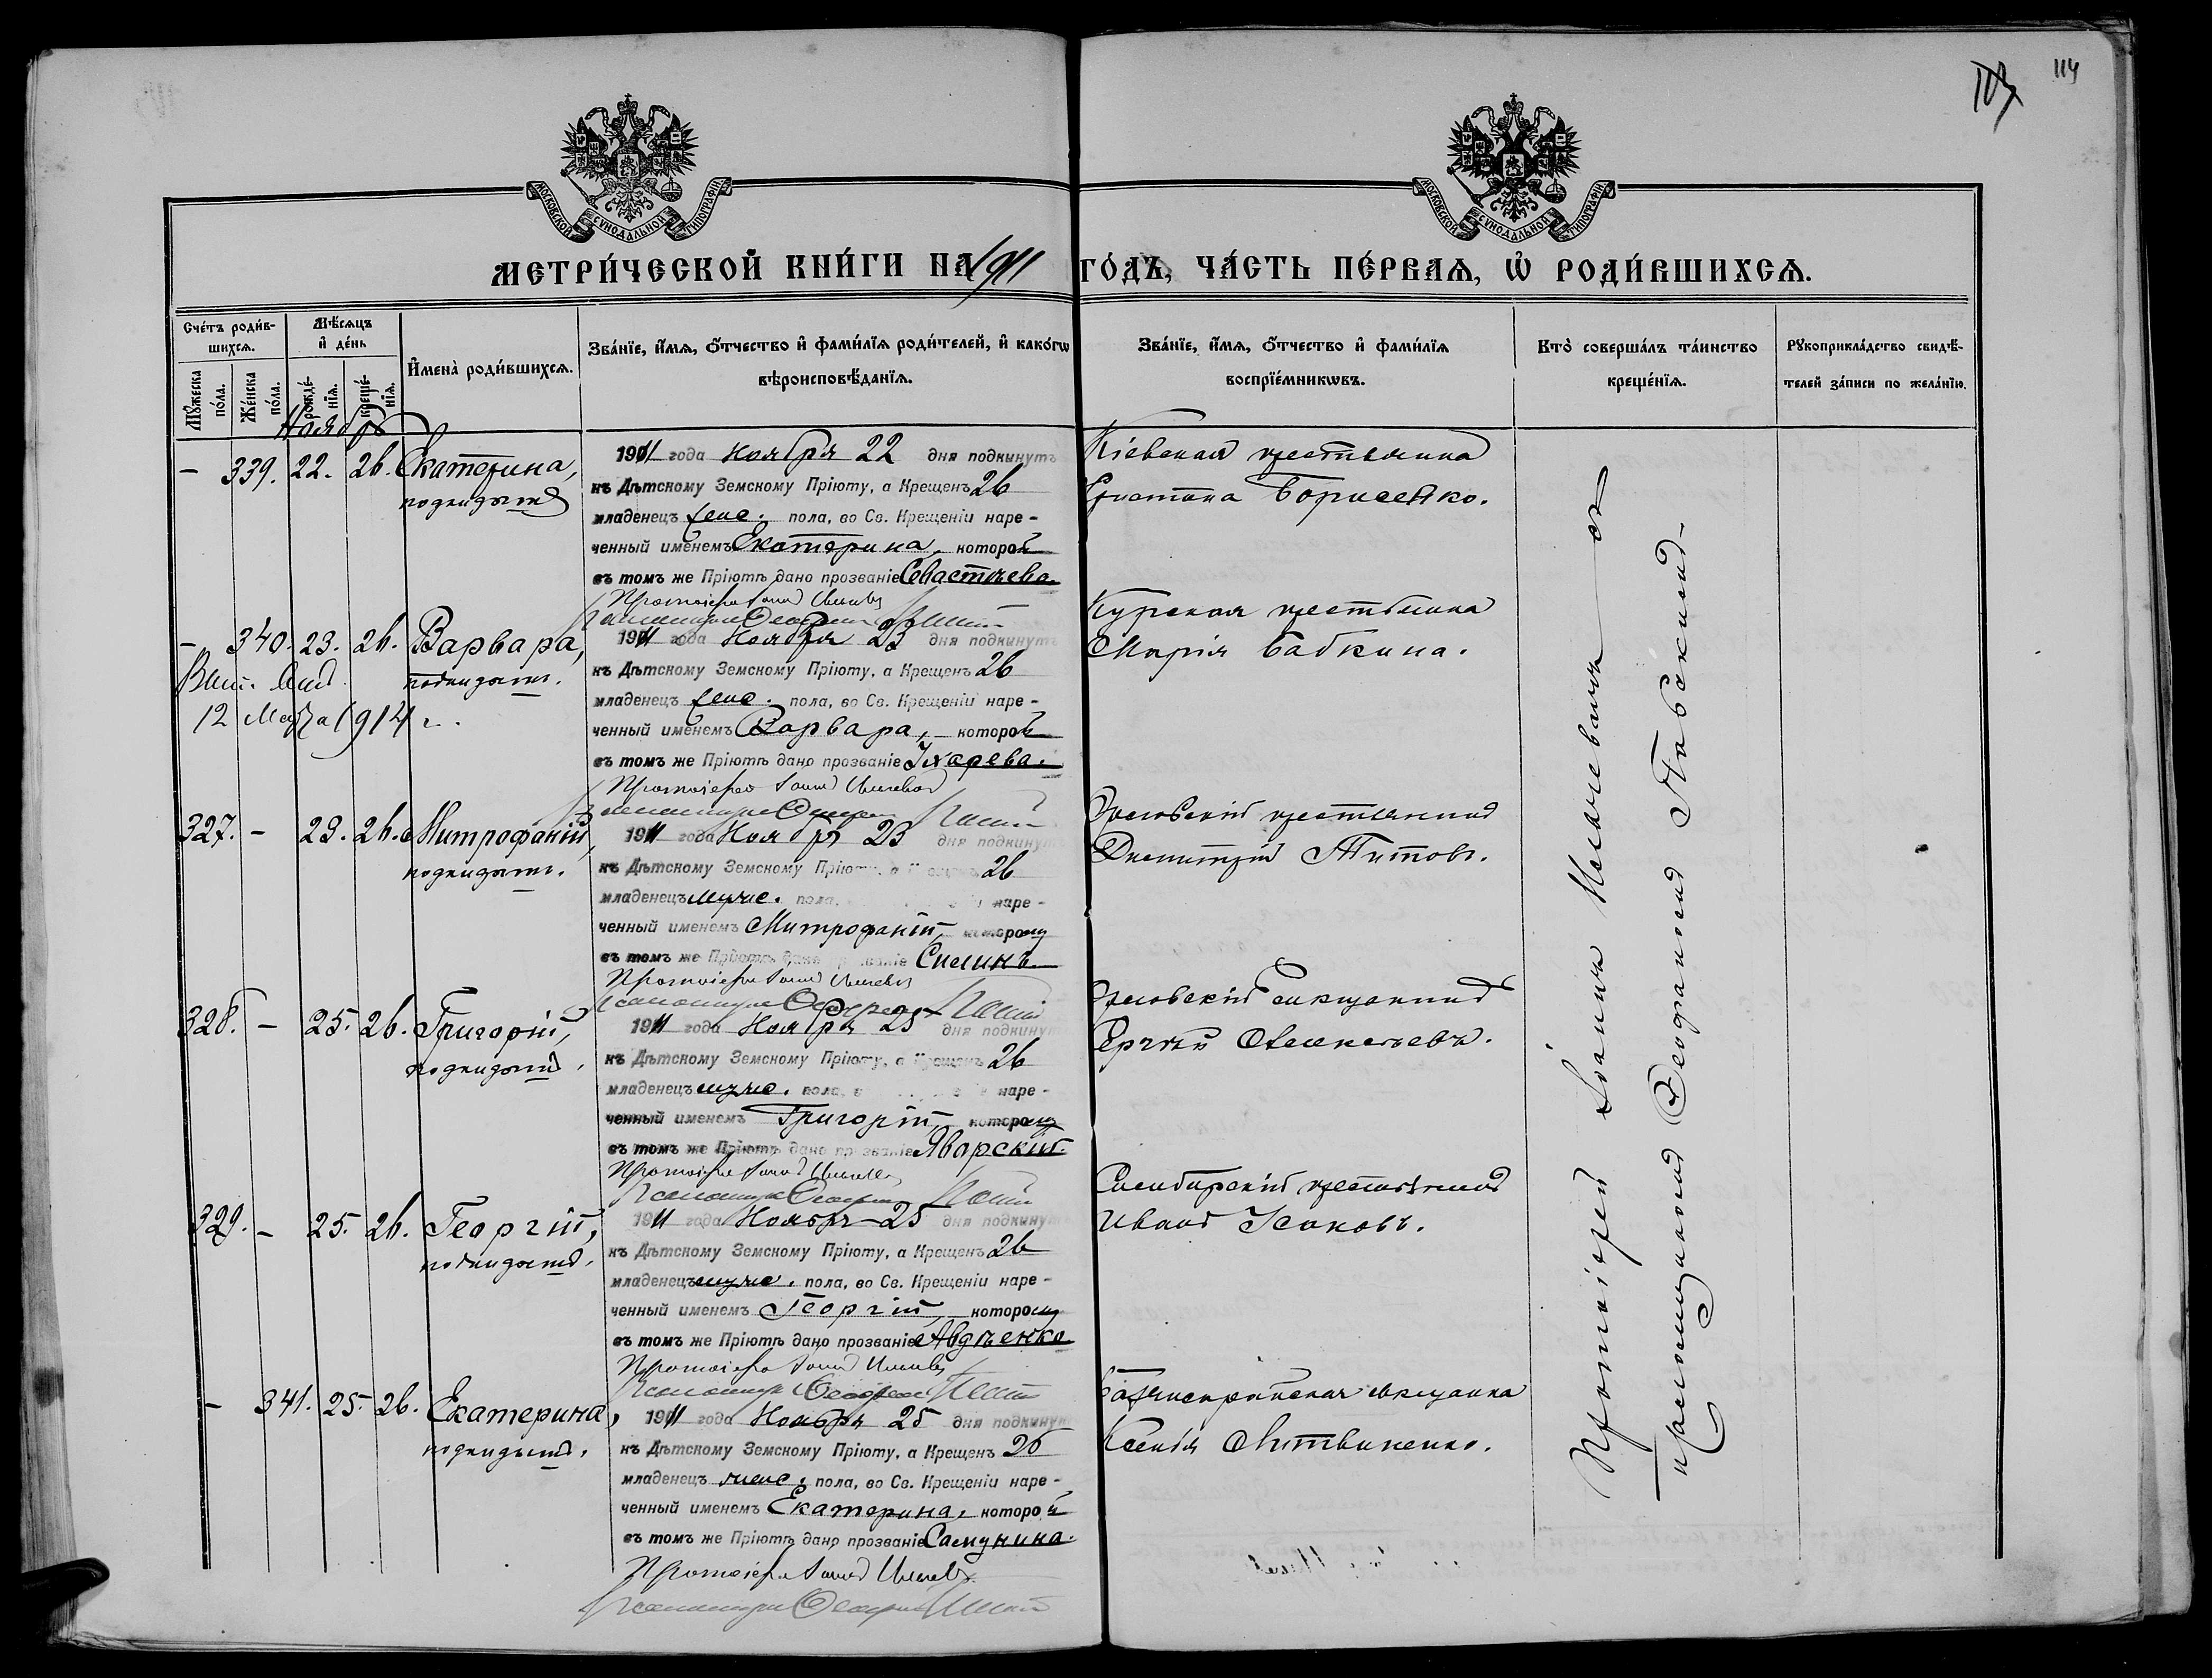 114
МОСКОВСКОЙ СѴНОДАЛЬНОЙ ТИПОГРАФІИ
МОСКОВСКОЙ СѴНОДАЛЬНОЙ ТИПОГРАФІИ
МЕТРИ́ЧЕСКОЙ КНИ́ГИ НА 1911 ГО́ДЪ, ЧА́СТЬ ПЕ́РВАѦ, Ѡ҆ РОДИ́ВШИХСѦ.
Сче́тъ роди́вшихсѧ.
Мꙋ́жеска по́ла.
Же́нска по́ла.
Мѣ́сѧцъ и҆ де́нь
рожде́нїѧ.
креще́нїѧ.
И҆мена̀ роди́вшихсѧ.
Зва́нїе, и҆́мѧ, ѻ҆́тчество и҆ фамѝлїѧ роди́телей, и҆ како́гѡ вѣроисповѣ́данїѧ.
Зва́нїе, и҆́мѧ, ѻ҆́тчество и҆ фамѝлїѧ воспрїе́мникѡвъ.
Кто̀ соверша́лъ та́инство креще́нїѧ.
Рꙋкоприкла́дство свидѣ́телей за́писи по жела́нїю.
Ноябрь
– 339. 22. 26. Екатерина,
подкидышъ
1911 года Ноября 22 дня подкинутъ
къ Дѣтскому Земскому Пріюту, а Крещенъ 26
младенецъ женс. пола, во Св. Крещеніи наре-
ченный именемъ Екатерина, которой
въ томъ же Пріютѣ дано прозваніе Севастьева.
Протоіерей
Кіевская крестьянка
Христина Борисенко.
– 340. 23. 26. Варвара,
подкидышъ.
12 Марта 1914 г.
1911 года Ноября 23 дня подкинутъ
къ Дѣтскому Земскому Пріюту, а Крещенъ 26
младенецъ женс. пола, во Св. Крещеніи наре-
ченный именемъ Варвара, которой
въ томъ же Пріютѣ дано прозваніе Ухарева.
Протоіерей
Курская крестьянка
Марія Бабкина.
327. – 23. 26. Митрофаній,
подкидышъ.
1911 года Ноября 23 дня подкинутъ
къ Дѣтскому Земскому Пріюту, а Крещенъ 26
младенецъ мужс. пола, наре-
ченный именемъ Митрофаній, которому
въ томъ же Пріютѣ дано прозваніе
Протоіерей
Орловскій крестьянинъ
Димитрій Титовъ.
328. – 25. 26. Григорій,
подкидышъ.
1911 года Ноября 25 дня подкинутъ
къ Дѣтскому Земскому Пріюту, а Крещенъ 26
младенецъ мужс. пола, наре-
ченный именемъ Григорій, которому
въ томъ же Пріютѣ дано прозваніе Яворскій.
Протоіерей
Орловскій мѣщанинъ
Сергѣй Алексѣевъ.
329. – 25. 26. Георгій,
подкидышъ.
1911 года Ноября 25 дня подкинутъ
къ Дѣтскому Земскому Пріюту, а Крещенъ 26
младенецъ мужс. пола, во Св. Крещеніи наре-
ченный именемъ Георгій, которому
въ томъ же Пріютѣ дано прозваніе Авдѣенко
Протоіерей
Симбирскій крестьянинъ
Иванъ Исаковъ.
– 341. 25. 26. Екатерина,
подкидышъ.
1911 года Ноября 25 дня подкинутъ
къ Дѣтскому Земскому Пріюту, а Крещенъ 26
младенецъ женс. пола, во Св. Крещеніи наре-
ченный именемъ Екатерина, которой
въ томъ же Пріютѣ дано прозваніе Самунина.
Протоіерей
мѣщанка
Ксенія Литвиненко.
Протоіерей Іоаннъ съ
псаломщикомъ